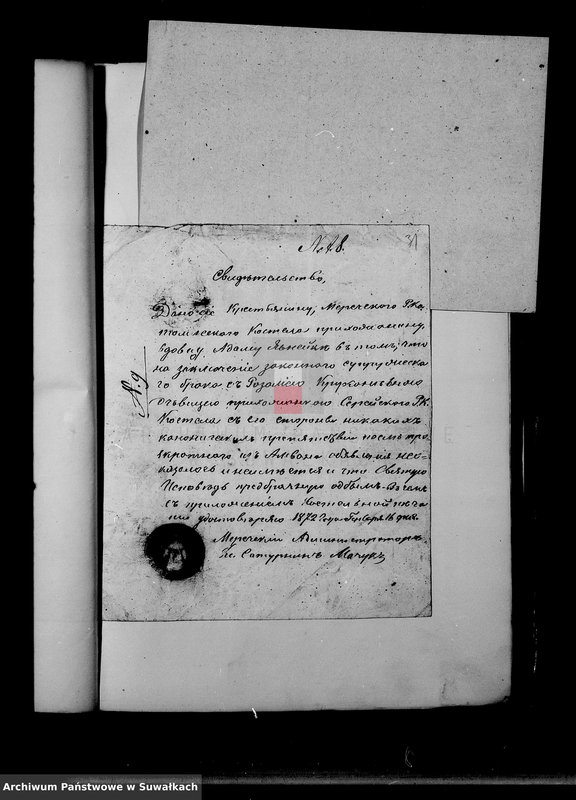 № 8.
31
Свидѣтельство,
Дано сіе Крестьянину, Меречского Р. Ка
толического Костела прихожанину,
вдовцу Адаму въ томъ, что
на заключеніе законного супружеска
го брака съ Розаліею
дѣвицею прихожанкою Сейского Р.К.
Костела съ его стороны никакихъ
каноническихъ препятствій послѣ тро
екратного изъ Амвона объявленія не о
казалось и неимѣется и что Святую
Исповѣдь предбрачную отбылъ
съ приложеніемъ Костельной печа
ти удостовѣряю 1872 года Января 16 дня.
Меречскій Администраторъ
Кс. Сатурнинъ Мачукъ
№ 9
Archiwum Państwowe w Suwałkach